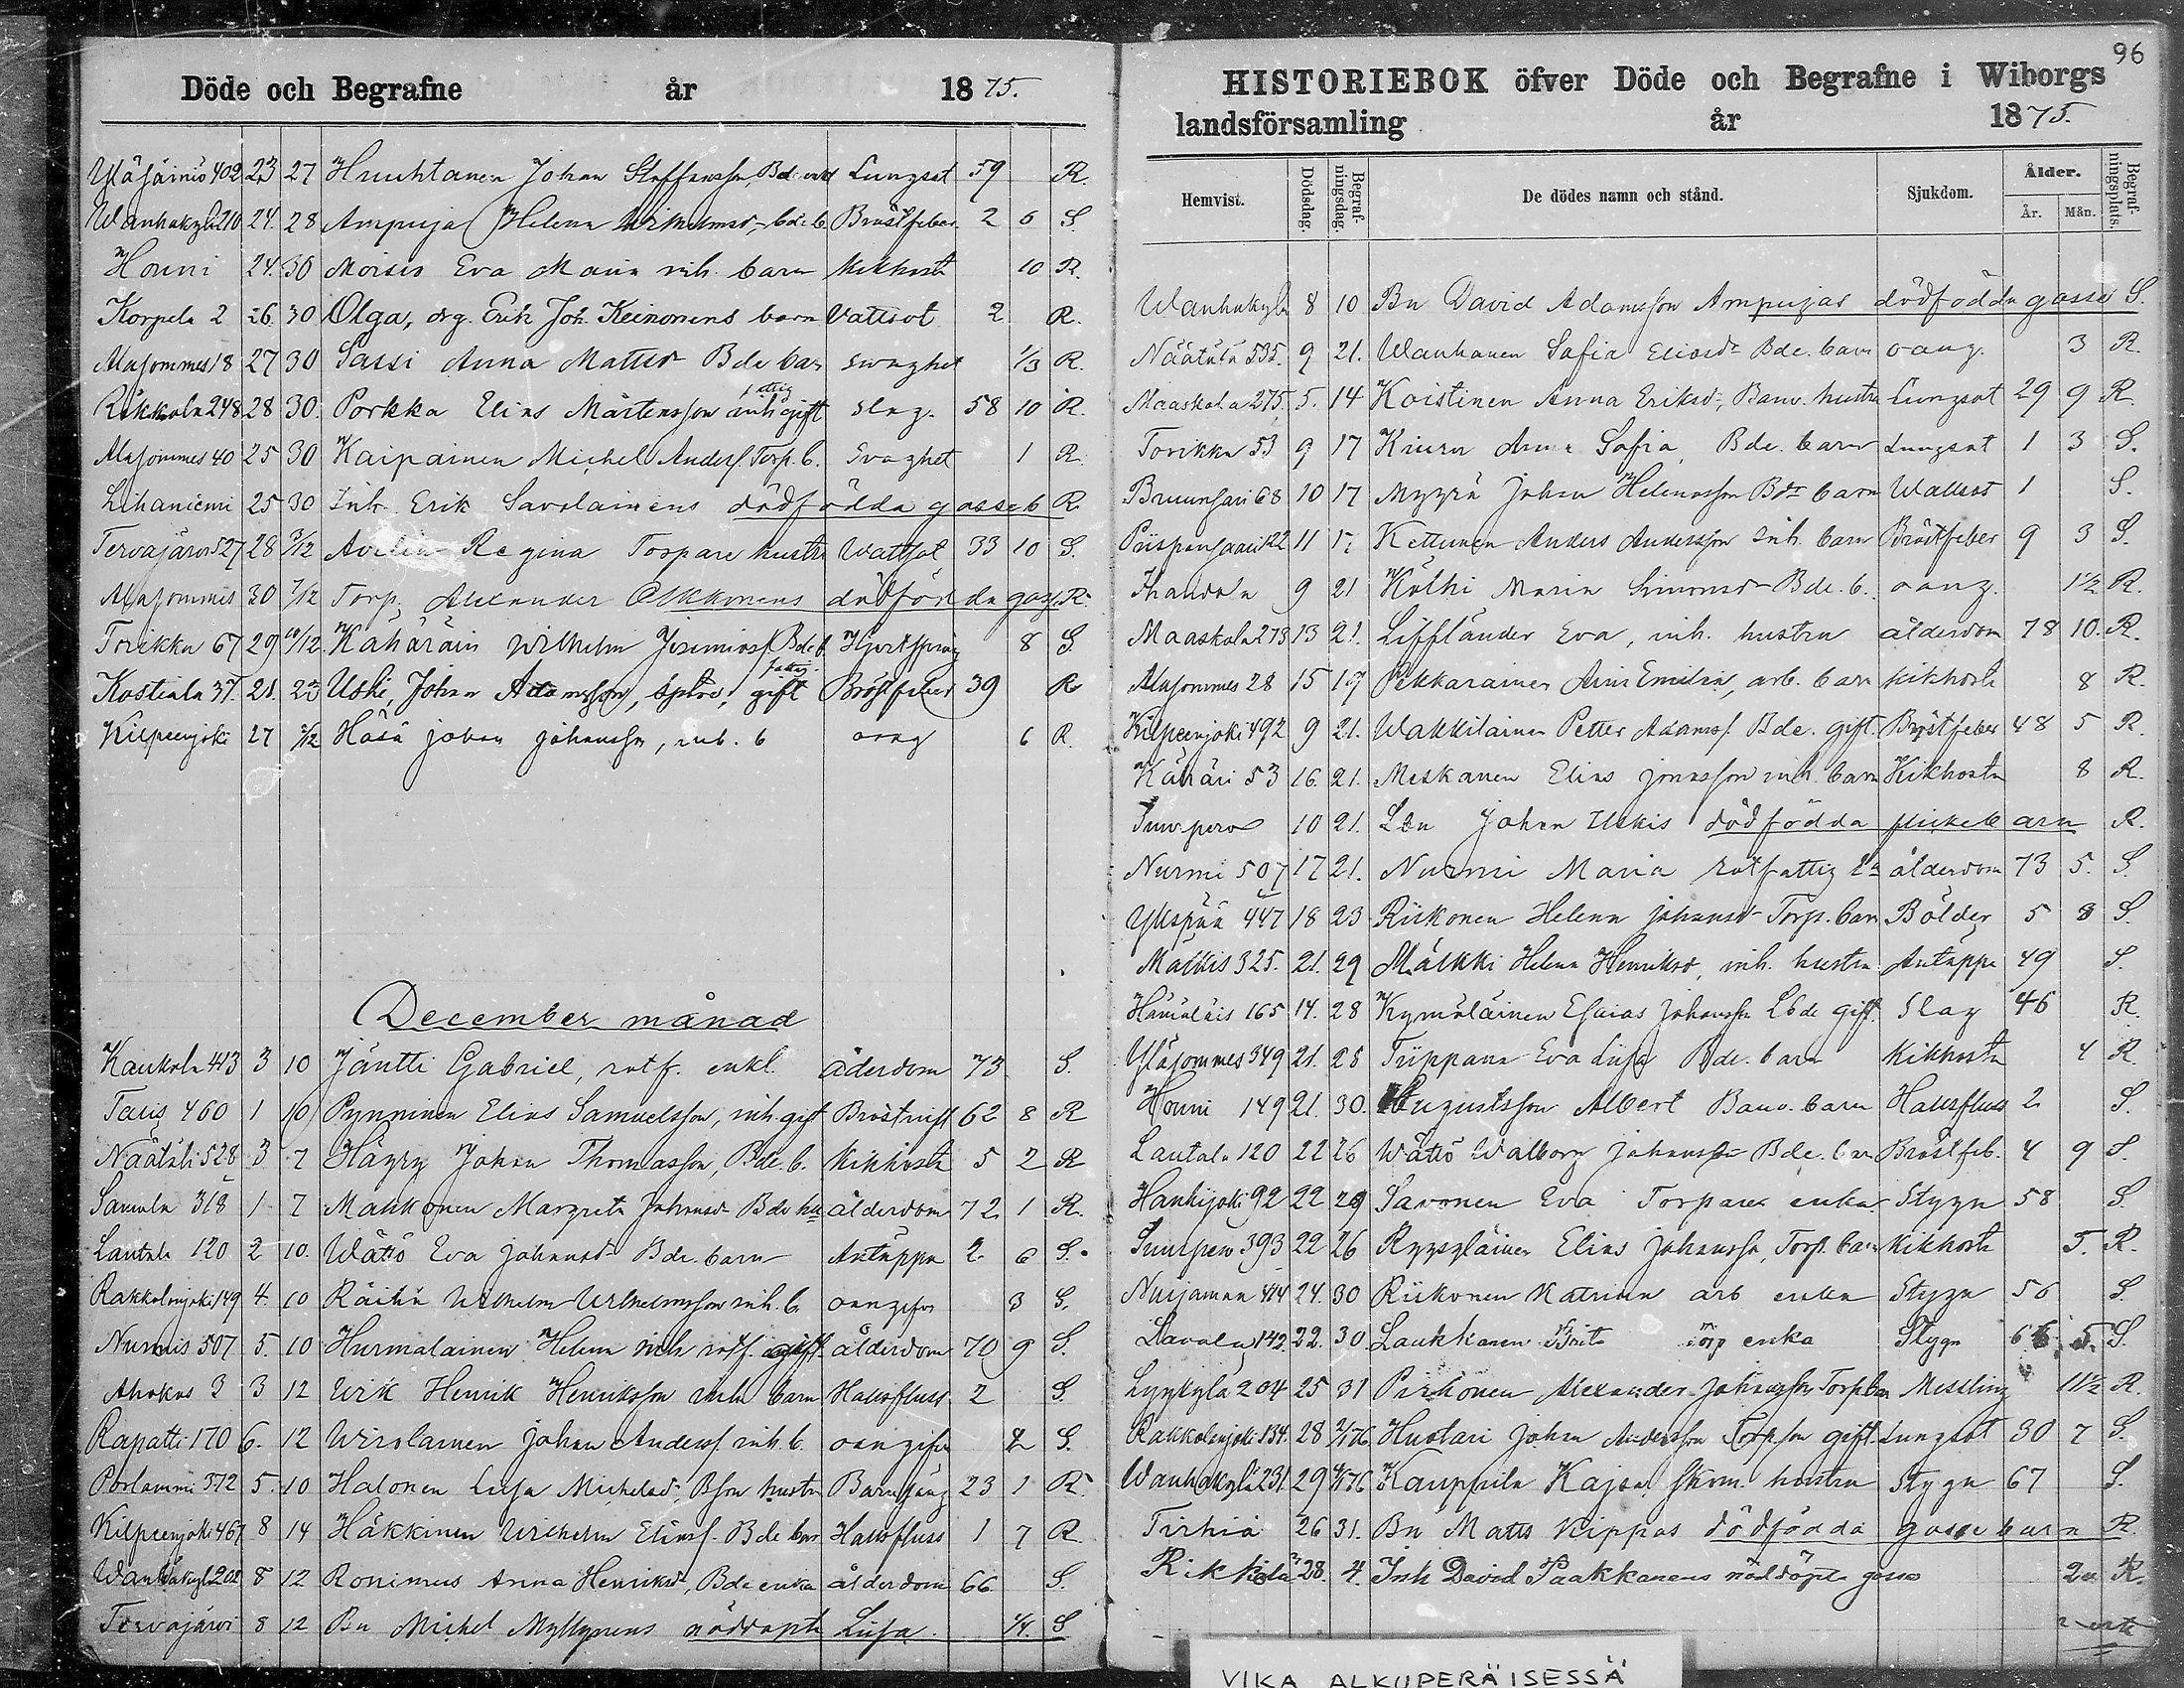 Döde och Begrafne år 1875.
Yläjärniö 402 23 27 Huuhtanen Johan Staffansson, Bd. Lungsot 59 R.
Wanhakylä 210 24. 28 Ampuja Helena Wilhelmsd., bde b. Bröstfeber 2 6 S.
Houni 24. 30 Moisio Eva Maria inh. barn Kikhosta 10 R.
Korpela 2 26. 30 Olga, drg. Erik Joh. Keinonens barn Vattsot 2 R.
Alasommes 18 27 30 Sassi Anna Mattsd. Bde bar Svaghet 1/3 R.
Rikkola 248 28 30. Porkka Elias Mårtensson inh fattig gift Slag. 58 10 R.
Alasommes 40 25 30 Kaipainen Michel Anders. Torp. b. Svaghet 1 R.
Lihaniemi 25 30 Inh. Erik Savolainens dödfödda gosseb R.
Tervajärvi 527 28 3/12 Regina Torpare hustru Wattsot 33 10 S.
Alasommes 30 7/12 Torp. Alexander Olkkonens dödfödda goss. R.
Torikka 67 29 10/12. Kähäräin Wilhelm Jeremias. Bde b. Hjertspräng 8 S.
Kostiala 37. 21. 23 Uski, Johan Adamsson, fattig gift Bröstfeber 39 R
Kilpeenjoki 27 2/12 Häsä Johan Johansson, inh. b oang 6 R.
December månad
Kaukola 413 3 10 Jäntti Gabriel, rotf. enkl. ålderdom 73 S.
Talis 460 1 10 Pynninen Elias Samuelsson, inh. gift 62 8 R
Näätälä 528 3 7 Häyry Johan Thomasson, Bde. b. Kikhosta 5 2 R
Samola 318 1 7 Makkonen Margreta Johansd. Bde hu ålderdom 72 1 R.
Lautala 120 2 10. Wättö Eva Johansd. Bde. barn Andtäppa 2 6 S.
Rakkolanjoki 149 4. 10 Räihä Wilhelm Wilhelmsson inh. b. oangifven 3 S.
Nurmis 507 5. 10 Hurmalainen Helena inh rotf. ogift. ålderdom 70 9 S.
Ahokas 3 3 12 Wik Henrik Henriksson inh barn Halsfluss 2 S.
Rapatti 170 6. 12 Wirolainen Johan Anders. inh. b. oangifven 2 S.
Porlammi 372 5. 10 Halonen Lisa Michelsd., Bson hustru Barnsäng 23 1 R.
Kilpeenjoki 467 8 14 Häkkinen Wilhelm Elias. Bde barn Halsfluss 1 7 R
Wanhakylä 202 8 12 Ronimus Anna Henriksd., Bde enka ålderdom 66 S.
Tervajärvi 8 12 Bn Michel Myllynens nöddöpta Lisa. 1/4. S
96
HISTORIEBOK öfver Döde och Begrafne i Wiborgs
landsförsamling år 1875.
Hemvist. Dödsdag. Begrafningsdag. De dödes namn och stånd. Sjukdom. Ålder. År. Mån. Begrafningsplats.
Wanhakylä 8 10 Bn David Adamsson Ampujas dödfödda gosse S.
Näätälä 535. 9 21. Wanhanen Sofia Eliasd. Bde. barn oang. 3 R.
Maaskola 275. 5. 14 Koistinen Anna Eriksd., Banv. hustru Lungsot 29 9 R.
Torikka 53 9 17 Kiuru Anna Sofia, Bde. barn Lungsot 1 3 S.
Bruunsari 68 10 17 Myyrä Johan Helenasson Bde barn Wattsot 1 S.
Piispansaari 122 11 17 Kettunen Anders Andersson inh. barn Bröstfeber 9 3 S.
Ihandala 9 21 Kölhi Maria Simonsd. Bde. b. oang. 1 1/2 R.
Maaskola 273 13 21. Liffländer Eva, inh. hustru ålderdom 78 10. R.
Alasommes 28 15 19 Pekkarainen Aina Emilia, arb. barn Kikhosta 8 R.
Kilpeenjoki 492 9 21. Wakkilainen Petter Adams. Bde. gift. Bröstfeber 48 5 R.
Kähäri 53 16. 21. Meskanen Elias Jonasson inh. barn Kikhosta 8 R.
Suurpero 10 21. Johan Uskis dödfödda flickebarn R.
Nurmi 507 17 21. Nurmi Maria rotfattig ålderdom 73 5. S.
Ykspää 447 18 23 Riikonen Helena Johansd. Torp. barn Bölder 5 8 S.
Mälkis 325. 21. 29 Mälkki Helena Henriksd, inh. hustru Andtäppa 49 S.
Hämäläis 165 14. 28 Kymäläinen Esaias Johansson Lbde gift. Slag 46 R.
Yläsommes 349 21. 28 Tiippana Eva Lisa Bde. barn Kikhosta 4 R
Houni 149 21. 30. Augustsson Albert Banv. barn Halsfluss 2 S.
Lautala 120 22 26 Wättö Walborg Johansd Bde. barn Bröstfeb. 4 9 S.
Hanhijoki 92 22 29 Savonen Eva Torpares enka Stygn 58 S.
Suurpero 393 22 26 Ryysyläinen Elias Johansson, Torp. barn Kikhosta 5. R.
Nuijamaa 414 24. 30 Riikonen Katrina arb enka Stygn 56 S.
Davala 142. 22. 30 Laukkanen Brita Torp enka Stygn 66 5. S.
Lyykylä 204 25 31 Pirhönen Alexander Johansson Torp barn Messling 11 1/2 R.
Rakkolanjoki 134. 28 2/1 76. Hustari Johan Andersson Torp. son gift. Lungsot 30 7 S.
Wanhakylä 231 29 4/1 76 Kauppila Kajsa Skom. hustru Stygn 67 S.
Tirhiä 26 31. Bn Matts Kippas dödfödda gossebarn R.
Rikkola 28. 4. Inh David Paakkanens nöddöpte gosse 2 R.
VIKA ALKUPERÄISESSÄ